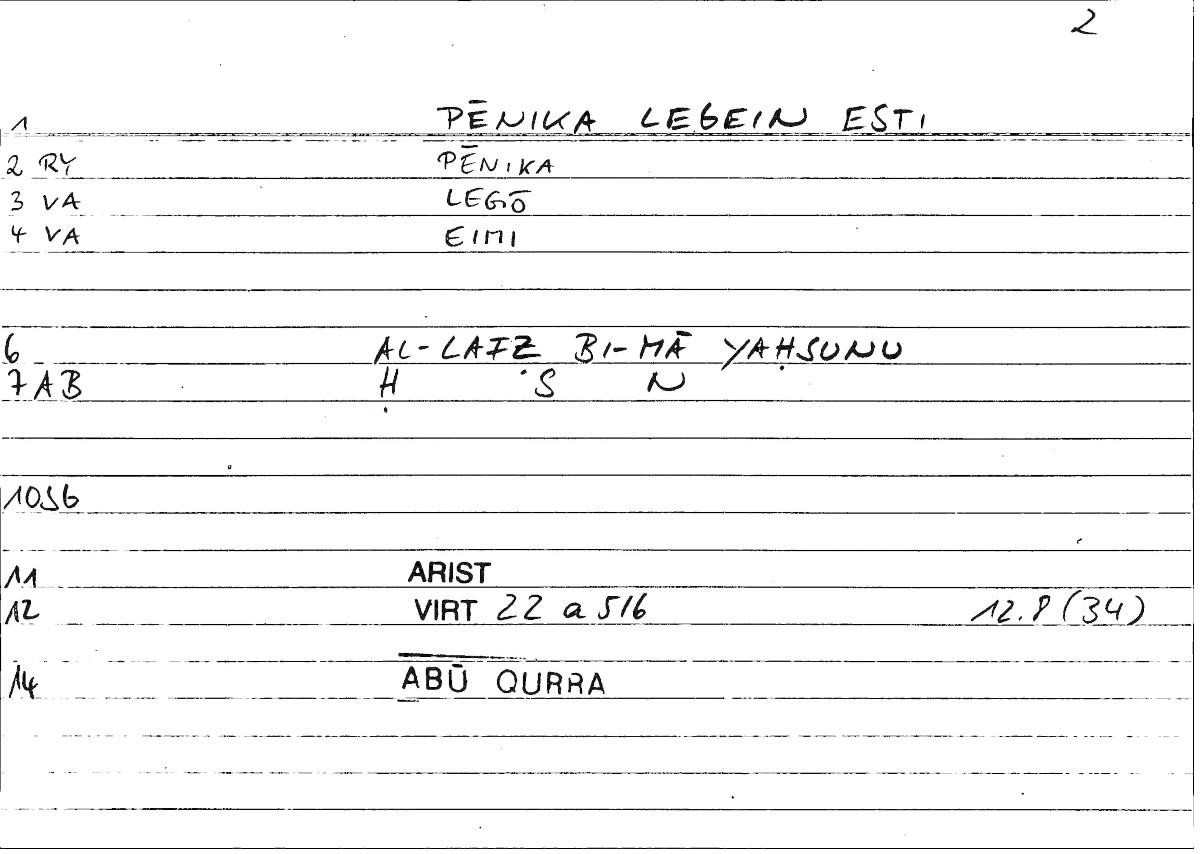 2
1 PĒNIKA LEGEIN ESTI
2 RY PĒNIKA
3 VA LEGŌ
4 VA EIMI
6 AL-LAFẒ BI-MĀ YAḤSUNU
7 AB Ḥ S N
10 SG
11 ARIST
12 VIRT 22 a 5/6 12.8 (34)
14 ABŪ QURRA